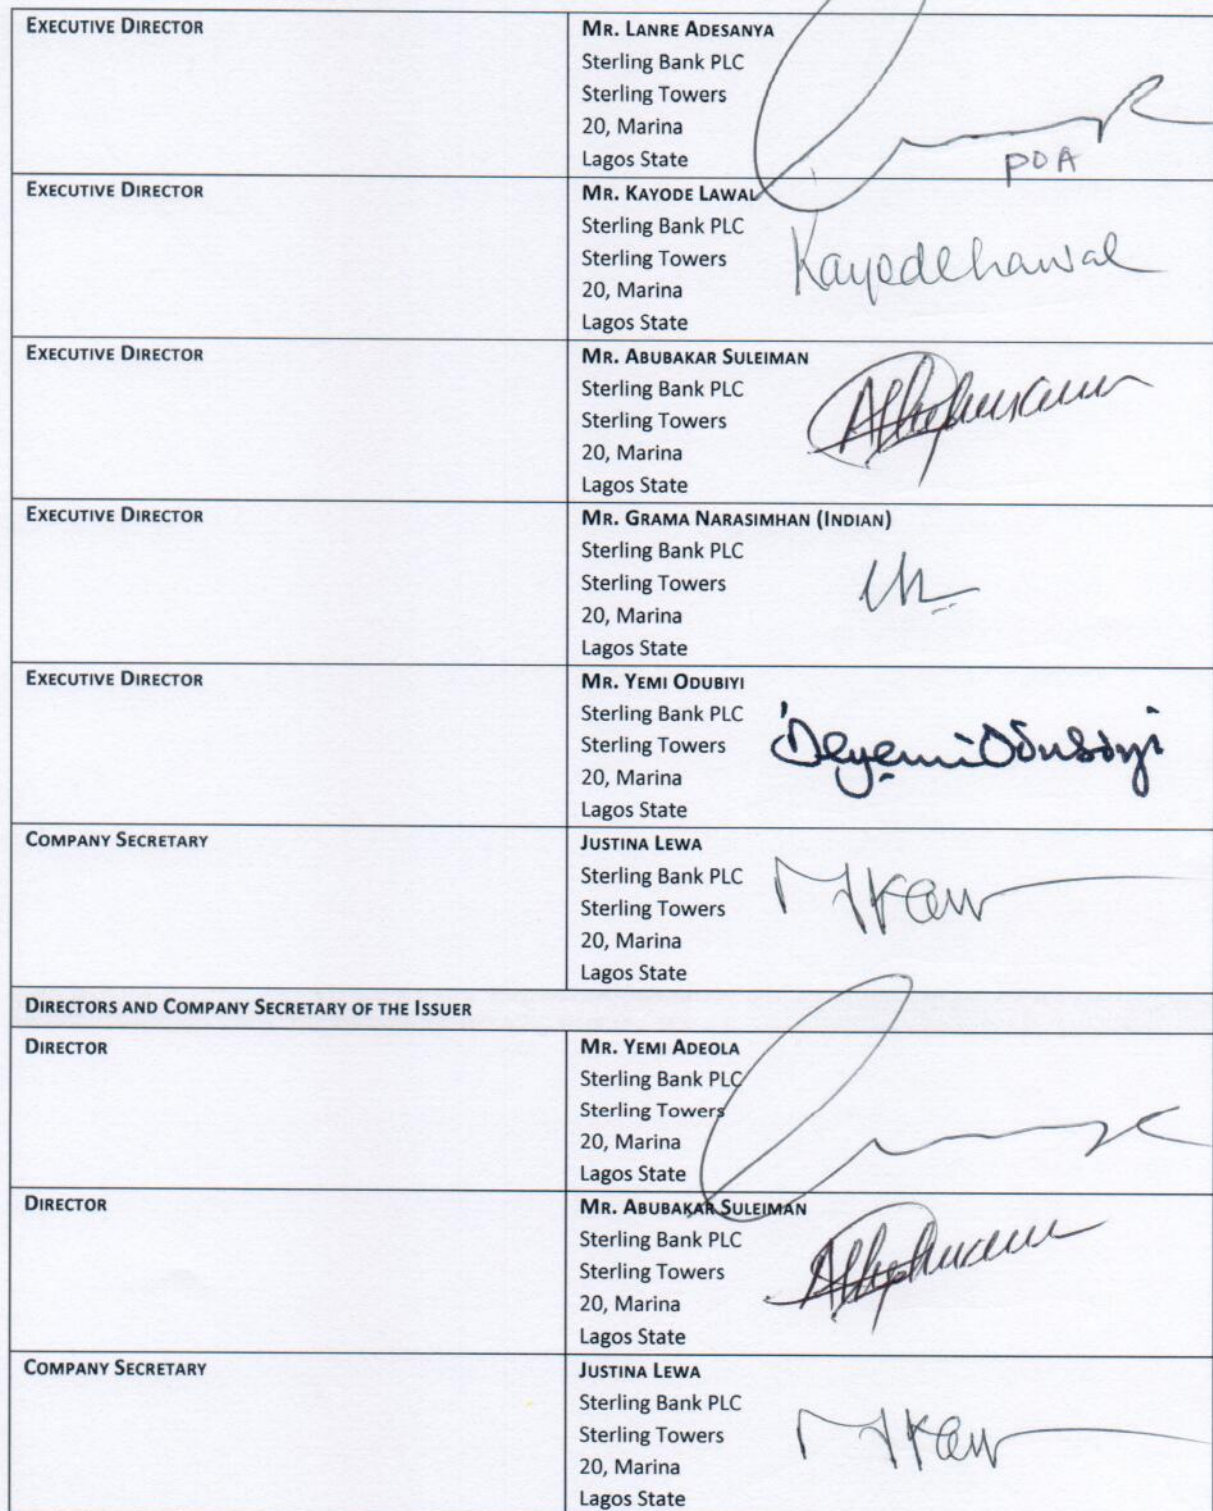 EXECUTIVE DIRECTOR
MR. LANRE ADESANYA
Sterling Bank PLC
Sterling Towers
20, Marina
Lagos State
POA
EXECUTIVE DIRECTOR
MR. KAYODE LAWAL
Sterling Bank PLC
Sterling Towers
20, Marina
Lagos State
EXECUTIVE DIRECTOR
MR. ABUBAKAR SULEIMAN
Sterling Bank PLC
Sterling Towers
20, Marina
Lagos State
EXECUTIVE DIRECTOR
MR. GRAMA NARASIMHAN (INDIAN)
Sterling Bank PLC
Sterling Towers
20, Marina
Lagos State
EXECUTIVE DIRECTOR
MR. YEMI ODUBIYI
Sterling Bank PLC
Sterling Towers
20, Marina
Lagos State
COMPANY SECRETARY
JUSTINA LEWA
Sterling Bank PLC
Sterling Towers
20, Marina
Lagos State
DIRECTORS AND COMPANY SECRETARY OF THE ISSUER
DIRECTOR
MR. YEMI ADEOLA
Sterling Bank PLC
Sterling Towers
20, Marina
Lagos State
DIRECTOR
MR. ABUBAKAR SULEIMAN
Sterling Bank PLC
Sterling Towers
20, Marina
Lagos State
COMPANY SECRETARY
JUSTINA LEWA
Sterling Bank PLC
Sterling Towers
20, Marina
Lagos State